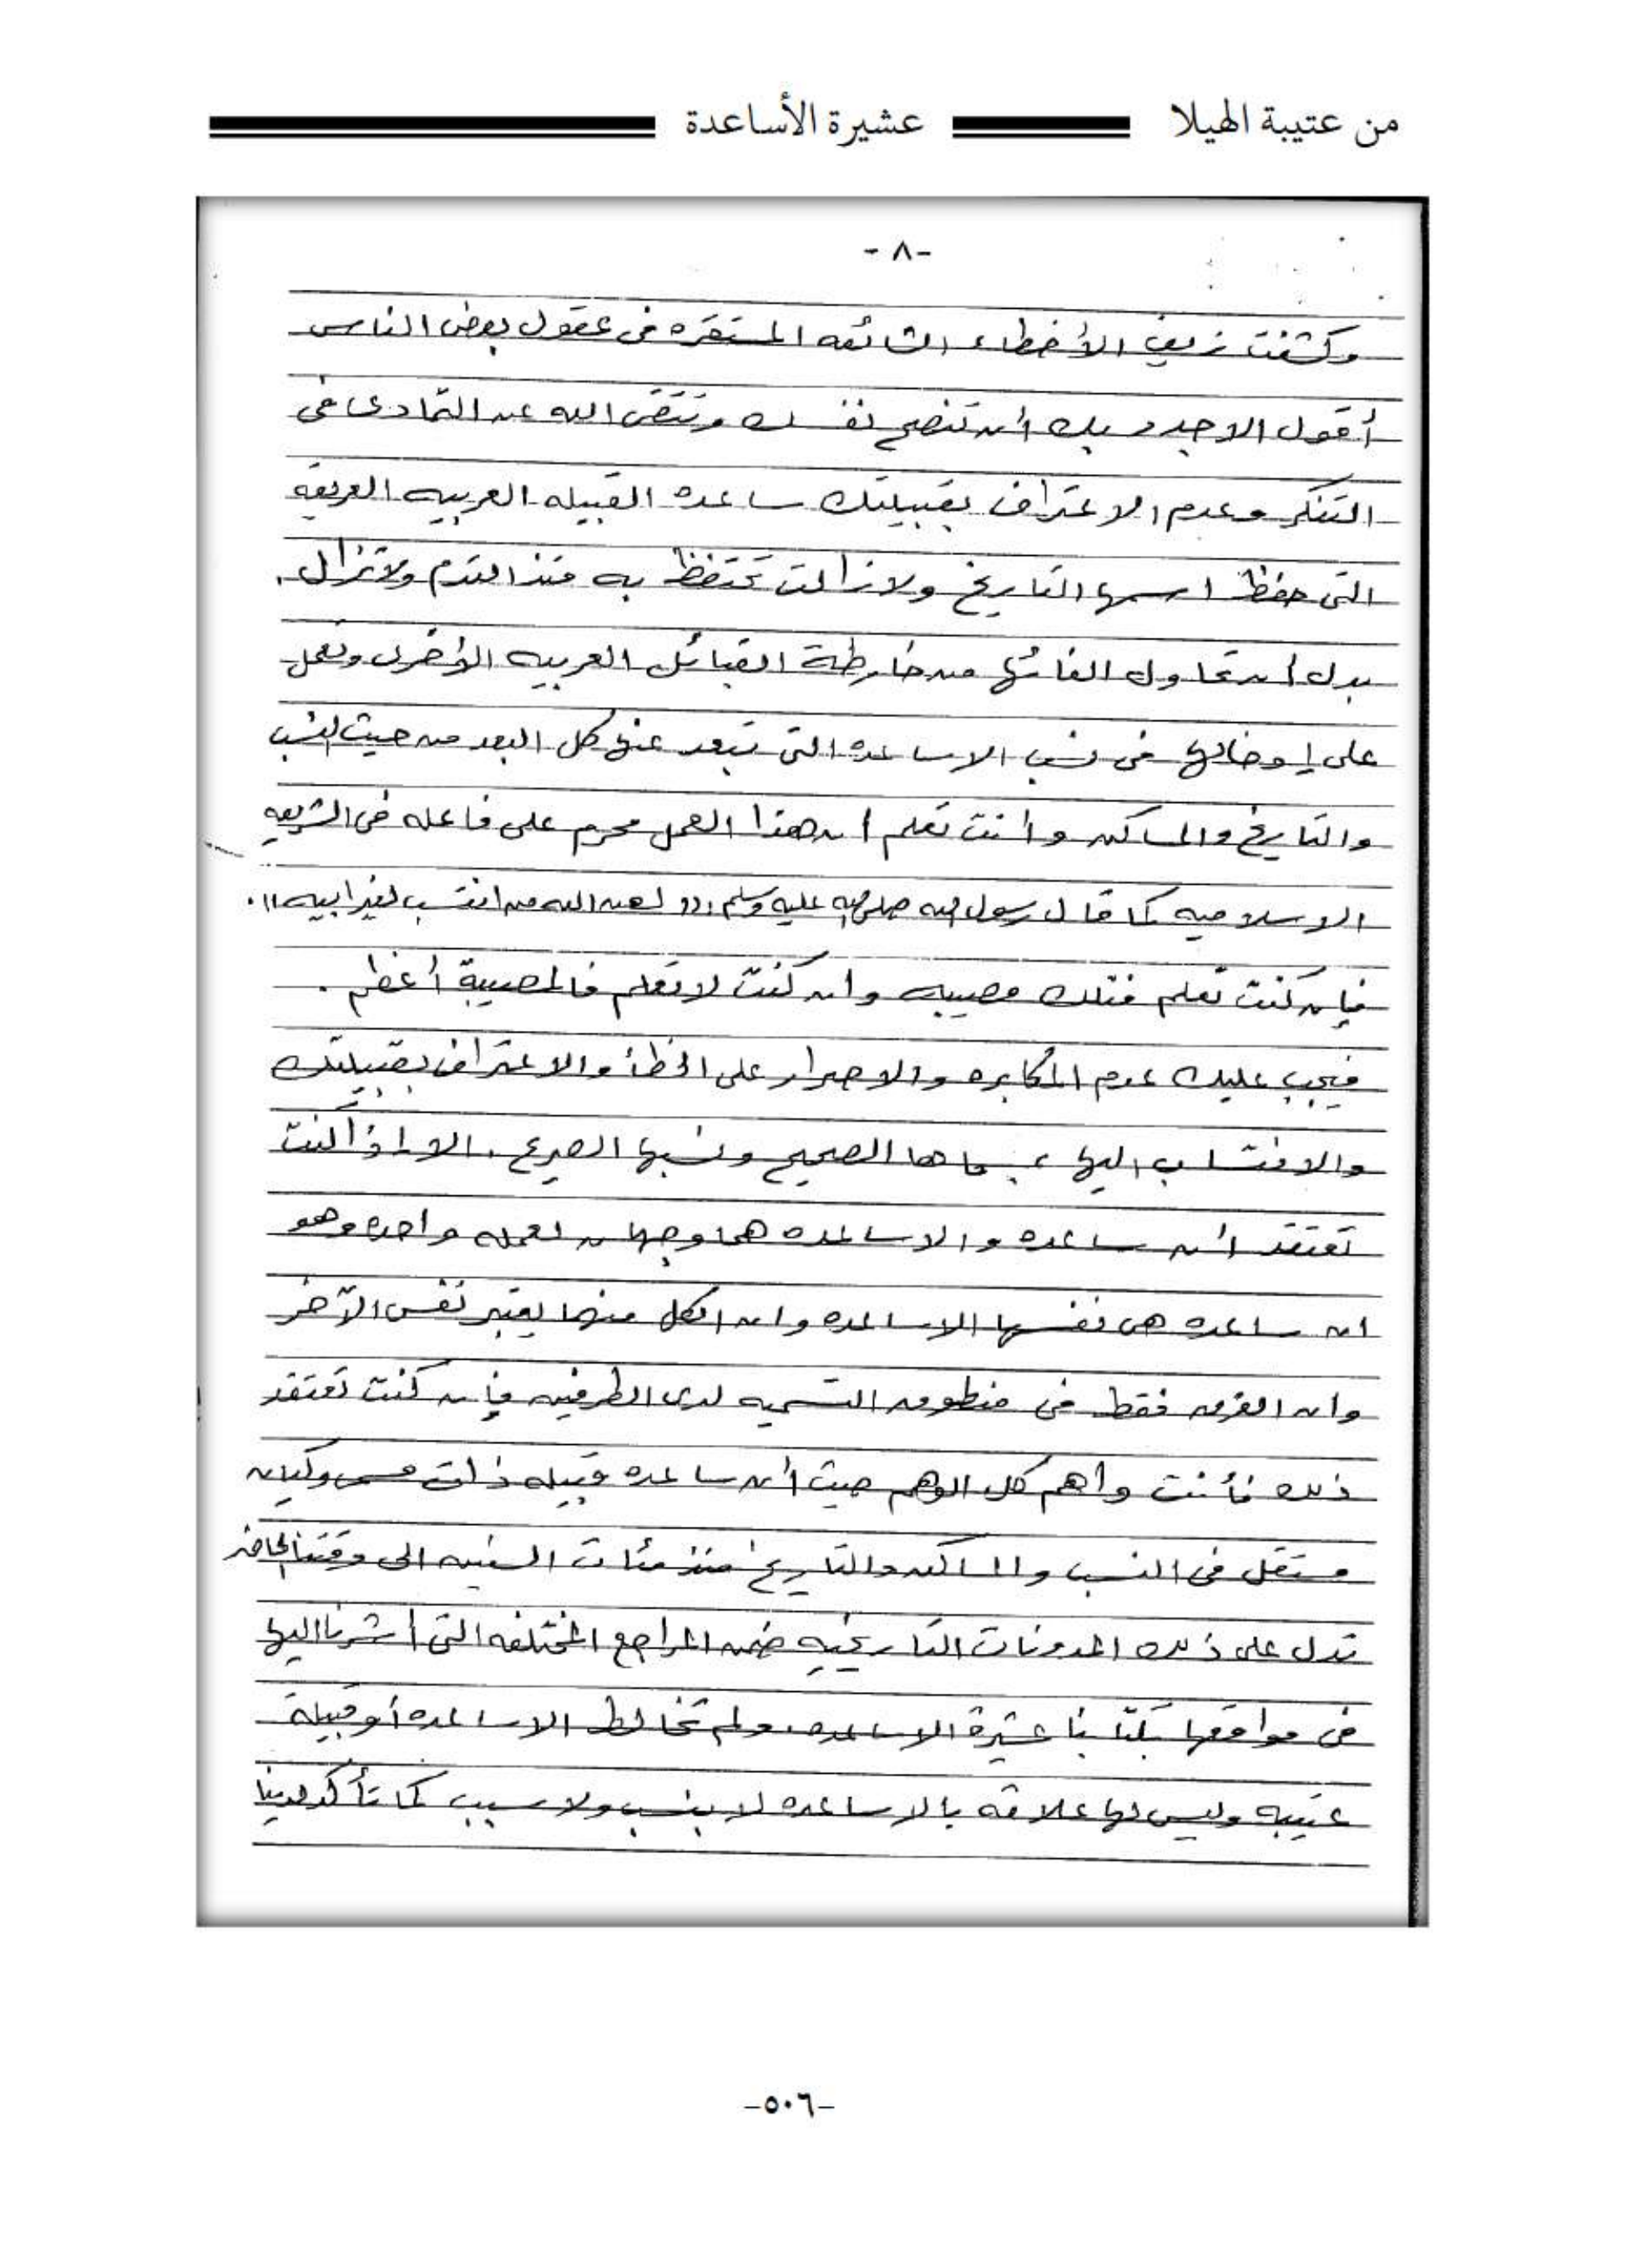 من عتيبة الهيلا عشيرة الأساعدة
-٨-
وكشفت زيف الأخطاء الشائعه المستقره فى عقول بعض الناس
أقول الاجدر بك أن تنصح نفسك وتتقى الله عن التمادى فى
التنكر وعدم الاعتراف بقبيلتك ساعده القبيله العربيه العريقه
التى حفظ اسمها التاريخ ولازالت تحتفظ به منذ القدم ولاتزال.
بدل أن تحاول الغائها من خارطة القبائل العربيه الأخرى وتعمل
على إدخالها فى نسب الاساعده التى تبعد عنها كل البعد من حيث النسب
والتاريخ والمساكن وأنت تعلم ان هذا العمل محرم على فاعله فى الشريعه
الاسلاميه كما قال رسول الله صلى الله عليه وسلم :(( لعن الله من انتسب لغير ابيه)).
فإن كنت تعلم فتلك مصيبه وان كنت لاتعلم فالمصيبة أعظم .
فيجب عليك عدم المكابره والاصرار على الخطأ والاعتراف بقبيلتك
والانتساب اليها بمسماها الصحيح ونسبها الصريح . الا إذا كنت
تعتقد أن ساعده والاساعده هما وجهان لعمله واحده وهو
ان ساعده هى نفسها الاساعده وان الكل منهما يعتبر نفس الآخر
وان الفرق فقط فى منطوق التسميه لدى الطرفين فإن كنت تعتقد
ذلك فأنت واهم كل الوهم حيث أن ساعده قبيله ذات مسمى وكيان
مستقل فى النسب والمساكن والتاريخ منذ مئات السنين الى وقتنا الحاضر
تدل على ذلك المدونات التاريخيه ضمن المراجع المختلفه التى أشرنا اليها
فى مواقعها بكتابنا عشيرة الاساعده. ولم تخالط الاساعده أو قبيلة
عتيبه وليس لها علاقه بالاساعده لا بنسب ولا سبب كما تأكد لدينا
-٥٠٦-